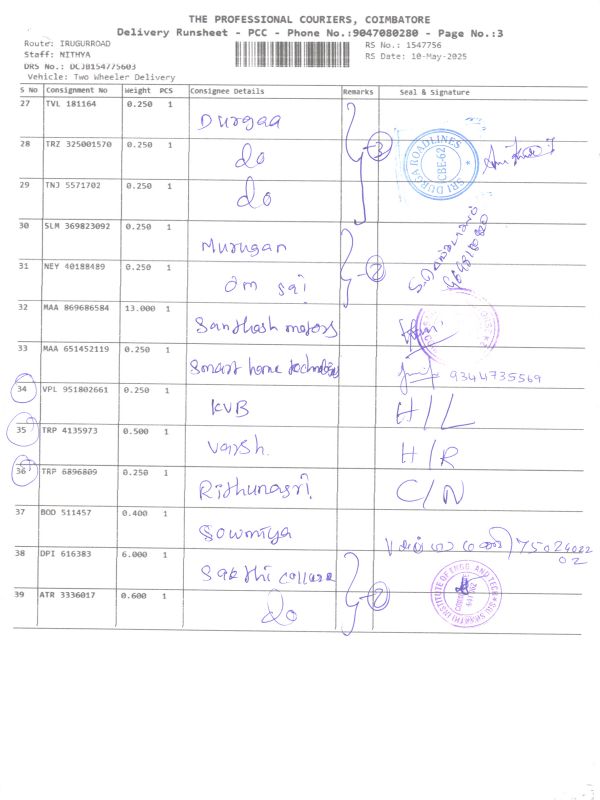 THE PROFESSIONAL COURIERS, COIMBATORE
Delivery Runsheet - PCC - Phone No.:9047080280 - Page No.:3
Route: IRUGURROAD
RS No.: 1547756
Staff: NITHYA
RS Date: 10-May-2025
DRS No.: DCJB154775603
Vehicle: Two Wheeler Delivery
S No Consignment No Weight PCS Consignee Details Remarks Seal & Signature
27 TVL 181164 0.250 1 Durgaa
28 TRZ 325001570 0.250 1 do 3
SRI DURGA ROADLINES CBE-62
29 TNJ 5571702 0.250 1 do
30 SLM 369823092 0.250 1 Murugan
31 NEY 40188489 0.250 1 om sai 2
32 MAA 869686584 13.000 1 Santhosh motors
33 MAA 651452119 0.250 1 Smart home technologies 9344735569
34 VPL 951802661 0.250 1 KVB H/L
35 TRP 4135973 0.500 1 Varsh. H/R
36 TRP 6896809 0.250 1 Rithunasri C/N
37 BOD 511457 0.400 1 Sowmiya
38 DPI 616383 6.000 1 Sakthi college 2
39 ATR 3336017 0.600 1 do